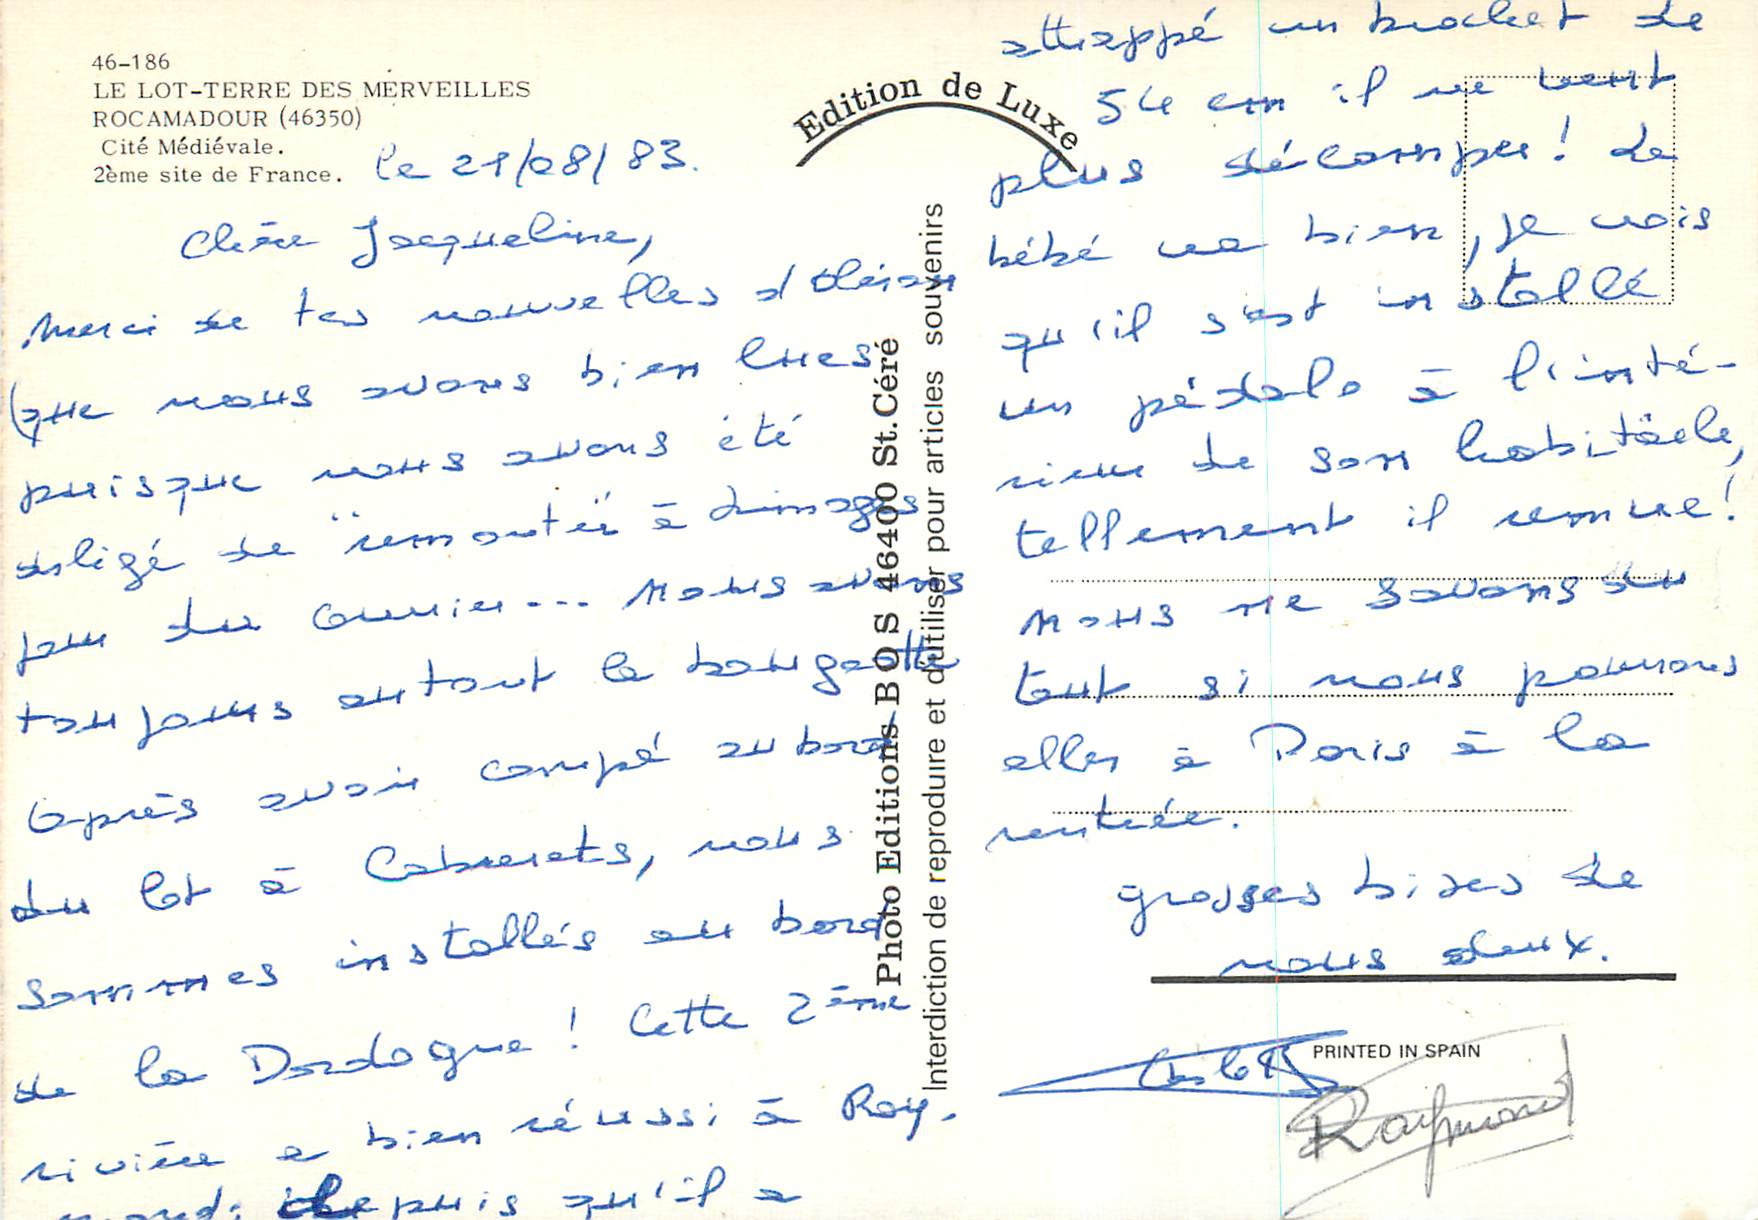 46-186
LE LOT-TERRE DES MERVEILLES
ROCAMADOUR (46350)
Cité Médiévale.
2ème site de France.
le 21/08/83.
Chère Jacqueline,
Merci de tes nouvelles d'Oléron
(que nous avons bien lues
puisque nous avons été
obligé de "remonter" à Limoges
pour du courrier... Nous avons
toujours autant la bougeotte
Après avoir campé au bord
du lot à Cabrerets, nous
sommes installés au bord
de la Dordogne ! Cette 2ème
rivière a bien réussi à Ray.
mond; depuis qu'il a
attrappé un brochet de
54 cm il ne veut
plus décamper ! Le
bébé va bien, je crois
qu'il s'est installé
un pédalo à l'inté-
rieur de son habitâcle,
tellement il remue !
Nous ne savons du
tout si nous pourrons
aller à Paris à la
rentrée.
grosses bises de
nous deux.
Raymond
Edition de Luxe
Photo Editions BOS 46400 St. Céré
Interdiction de reproduire et d'utiliser pour articles souvenirs
PRINTED IN SPAIN